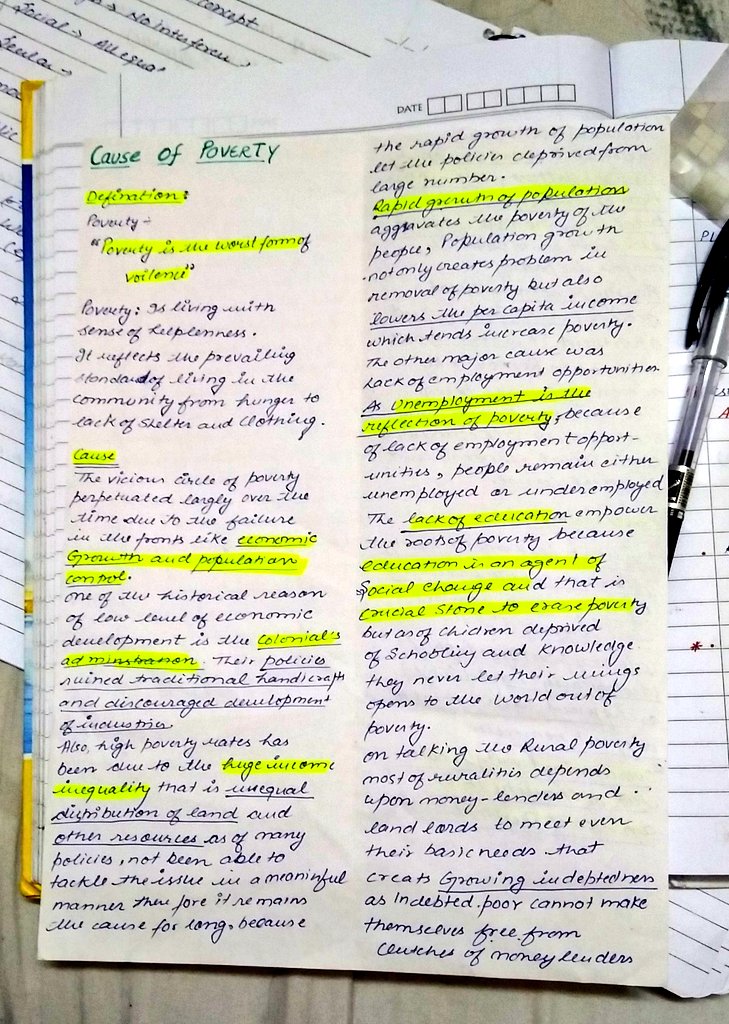 concept
Social → All equal
DATE
Cause of POVERTY
Defination:
Poverty -
"Poverty is the worst form of
voilence"
Poverty: Is living with
sense of helplenness.
It reflects the prevailing
standard of living in the
community from hunger to
lack of shelter and clothing.
Cause
The vicious circle of poverty
perpetuated largely over the
time due to the failure
in the fronts like economic
Growth and population
control.
one of the historical reason
of low level of economic
development is the colonial's
adminstration. Their policies
ruined traditional handicrafts
and discouraged development
of industries
Also, high poverty rates has
been due to the huge income
inequality that is unequal
distribution of land and
other resources as of many
policies, not been able to
tackle the issue in a meaninful
manner there fore it remains
the cause for long, because
the rapid growth of population
let the policies deprived from
large number.
Rapid growth of population
aggravates the poverty of the
people, Population growth
not only creates problem in
removal of poverty but also
lowers the per capita income
which tends increase poverty.
The other major cause was
Lack of employment opportunities
As Unemployment is the
reflection of poverty, because
of lack of employment opport-
unities, people remain either
unemployed or underemployed
The lack of education empower
the roots of poverty because
education is an agent of
Social change and that is
crucial stone to erase poverty
but as of chidren deprived
of Schooling and knowledge
they never let their wings
opens to the world out of
poverty.
on talking the Rural poverty
most of ruralitis depends
upon money-lenders and
land lords to meet even
their basic needs that
creats Growing indebtedness
as Indebted poor cannot make
themselves free from
clutches of money lenders